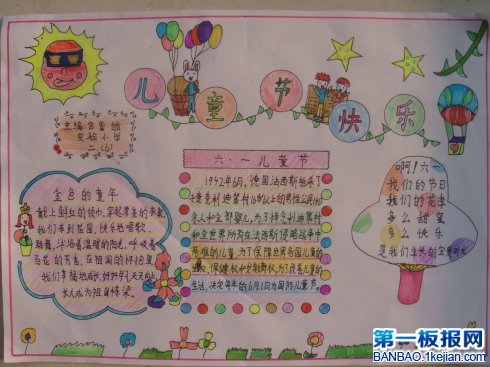 儿童节
快乐
实验小学
二、(6)
金色的童年
献上鲜红的
我们来到花园,快乐地唱歌、
跳舞,沐浴着温暖的阳光,呼吸着
百花的芳香,在祖国的怀抱里
我们幸福地成长,好好学习,天天向上
长大成为祖国栋梁。
六·一儿童节
1942年6月,德国法西斯枪杀了
捷克利迪策村16岁以上的男性公民140
余人和全部婴儿,为了悼念利迪策村
和全世界所有在法西斯侵略战争中
死难的儿童,为了保障世界各国儿童的
生存、保健权和受教育权,为了改善儿童的
生活,决定每年的6月1日为国际儿童节。
啊!六一
我们的节日
我们的花季
多么甜蜜
多么快乐
是我们生长的
第一板报网
BANBAO.1kejian.com